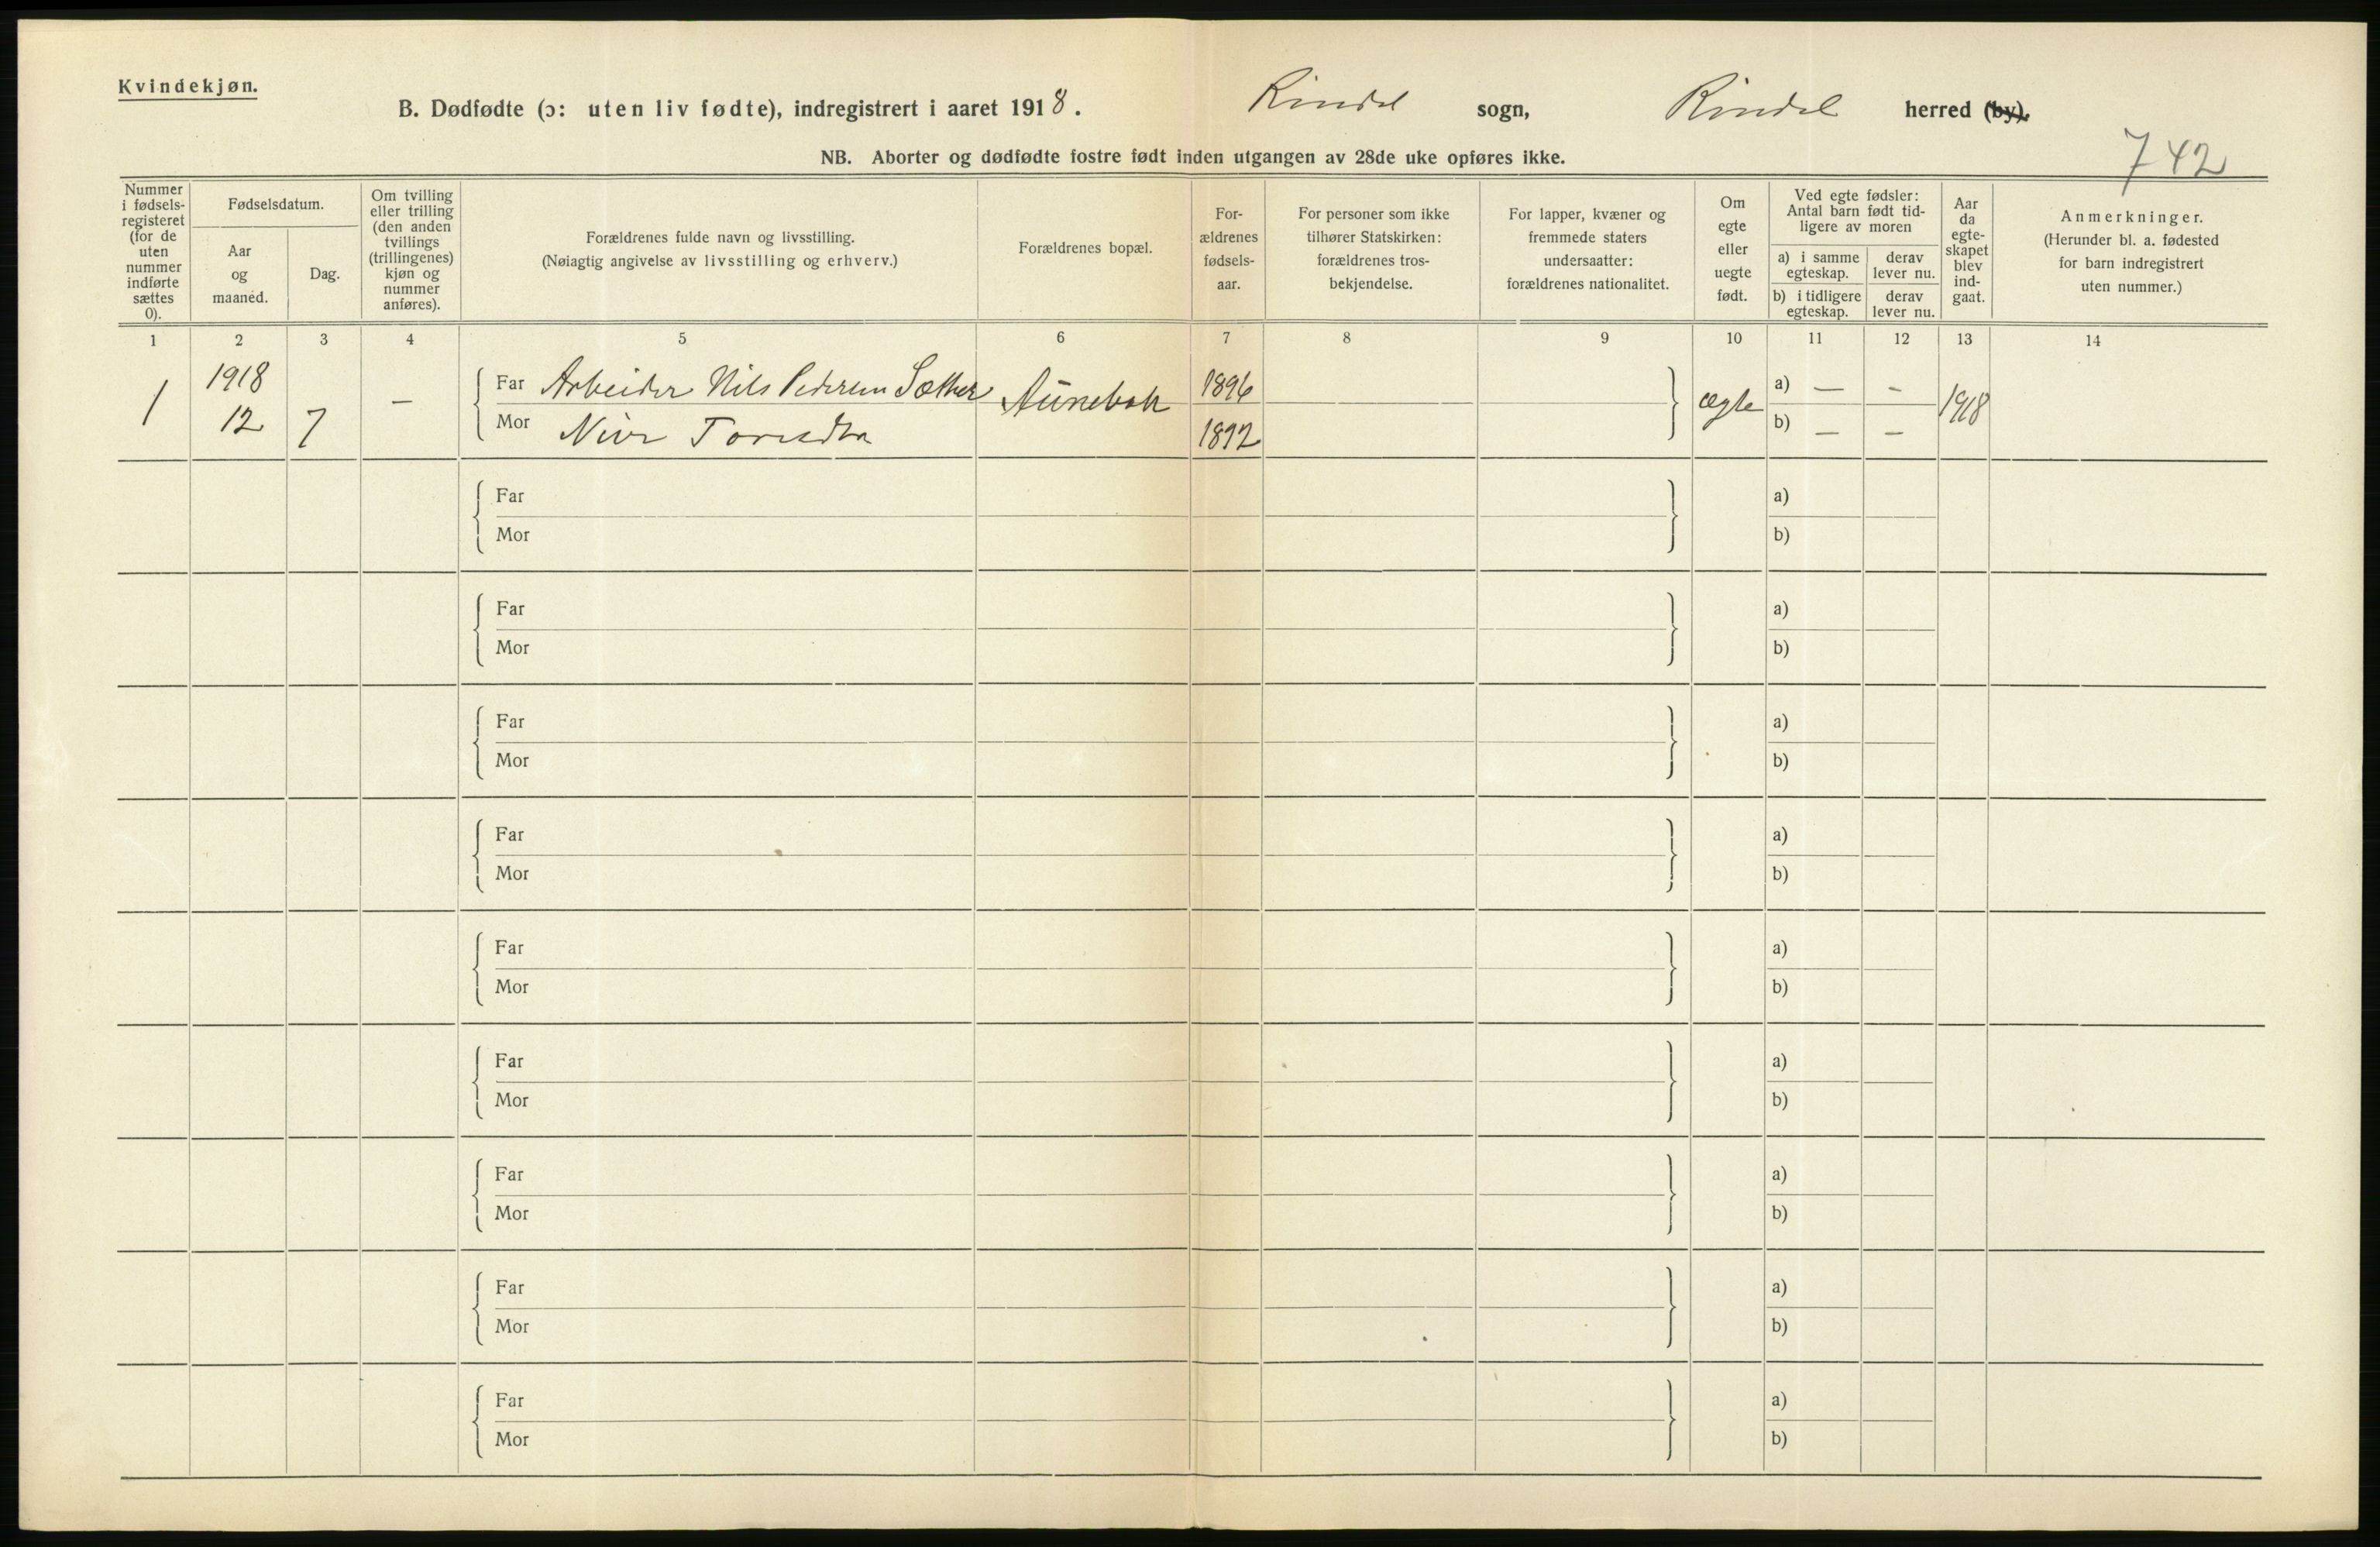 Kvindekjøn.
B. Dødfødte (ɔ: uten liv fødte), indregistrert i aaret 1918. Rindal sogn, Rindal herred (by).
742
NB. Aborter og dødfødte fostre født inden utgangen av 28de uke opføres ikke.
Nummer i fødsels-registeret (for de uten nummer indførte sættes 0).
Fødselsdatum.
Aar og maaned.
Dag.
Om tvilling eller trilling (den anden tvillings (trillingenes) kjøn og nummer anføres).
Forældrenes fulde navn og livsstilling.
(Nøiagtig angivelse av livsstilling og erhverv.)
Forældrenes bopæl.
For-ældrenes fødsels-aar.
For personer som ikke tilhører Statskirken: forældrenes tros-bekjendelse.
For lapper, kvæner og fremmede staters undersaatter: forældrenes nationalitet.
Om egte eller uegte født.
Ved egte fødsler: Antal barn født tid-ligere av moren
a) i samme egteskap.
derav lever nu.
b) i tidligere egteskap.
derav lever nu.
Aar da egte-skapet blev ind-gaat.
Anmerkninger.
(Herunder bl. a. fødested for barn indregistrert uten nummer.)
1 2 3 4 5 6 7 8 9 10 11 12 13 14
1 1918 12 7 — Far Arbeider Nils Pedersen Sæther 1896 ægte a) — - 1918
Mor 1892 b) — —
Far a)
Mor b)
Far a)
Mor b)
Far a)
Mor b)
Far a)
Mor b)
Far a)
Mor b)
Far a)
Mor b)
Far a)
Mor b)
Far a)
Mor b)
Far a)
Mor b)